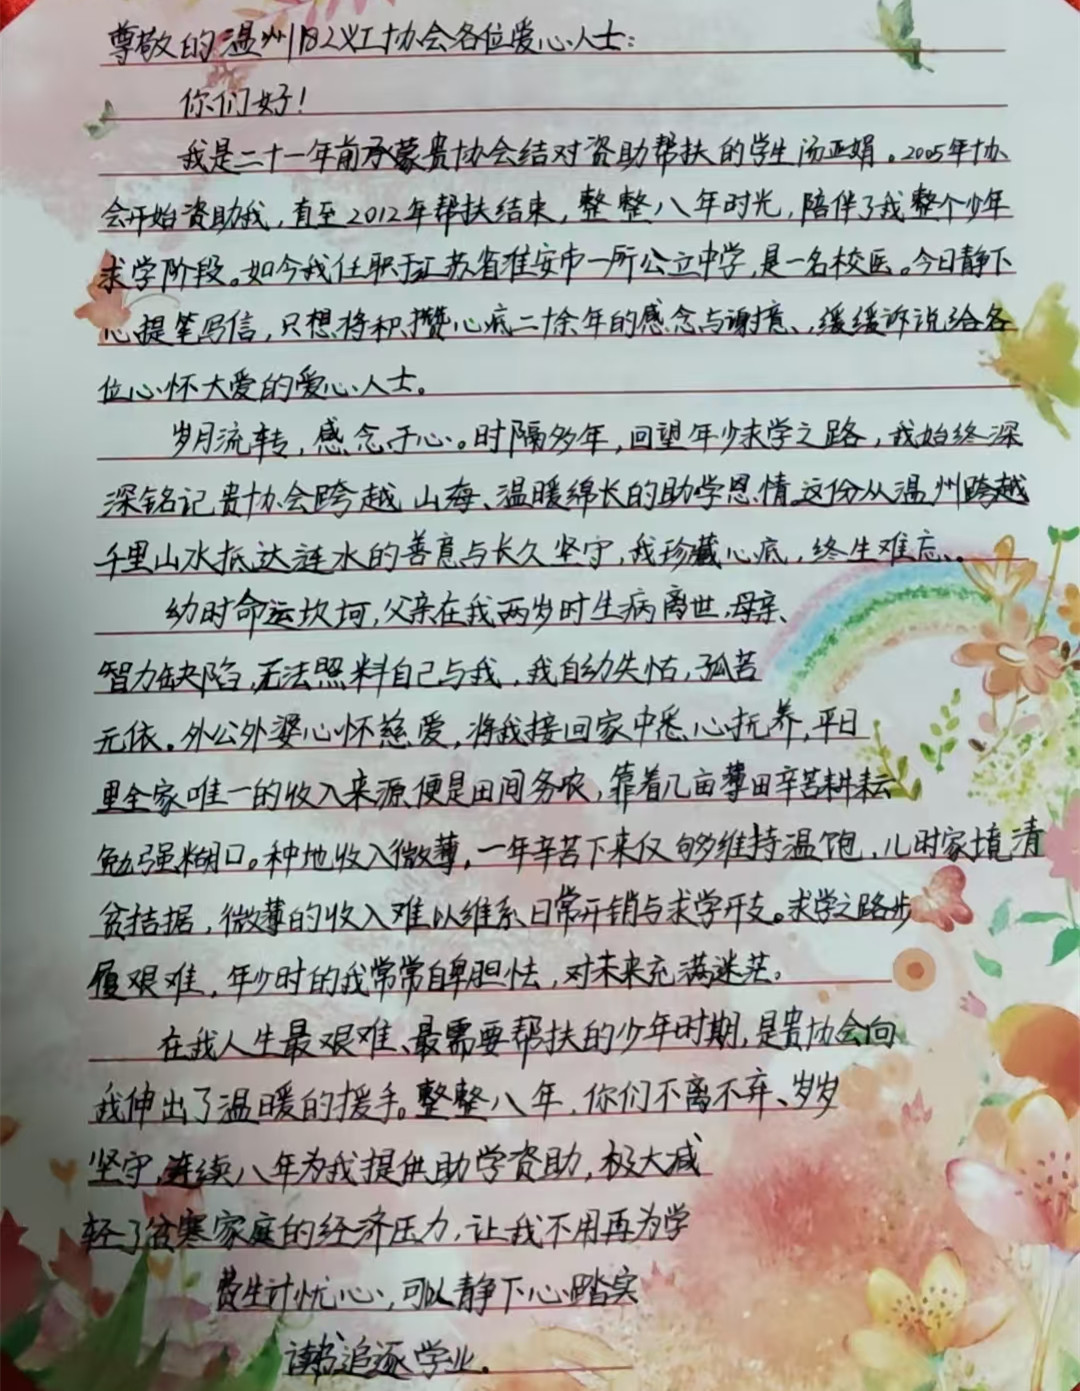 尊敬的温州182义工协会各位爱心人士：
你们好！
我是二十一年前承蒙贵协会结对资助帮扶的学生汤亚娟。2005年协
会开始资助我，直至2012年帮扶结束，整整八年时光，陪伴了我整个少年
求学阶段。如今我任职于江苏省淮安市一所公立中学，是一名校医。今日静下
心提笔写信，只想将积攒心底二十余年的感念与谢意、缓缓诉说给各
位心怀大爱的爱心人士。
岁月流转，感念于心。时隔多年，回望年少求学之路，我始终深
深铭记贵协会跨越山海、温暖绵长的助学恩情。这份从温州跨越
千里山水抵达涟水的善意与长久坚守，我珍藏心底，终生难忘。
幼时命运坎坷，父亲在我两岁时生病离世，母亲、
智力缺陷，无法照料自己与我，我自幼失怙，孤苦
无依。外公外婆心怀慈爱，将我接回家中悉心抚养，平日
里全家唯一的收入来源便是田间务农，靠着几亩薄田辛苦耕耘
勉强糊口。种地收入微薄，一年辛苦下来仅够维持温饱，儿时家境清
贫拮据，微薄的收入难以维系日常开销与求学开支。求学之路步
履艰难，年少时的我常常自卑胆怯，对未来充满迷茫。
在我人生最艰难、最需要帮扶的少年时期，是贵协会向
我伸出了温暖的援手。整整八年，你们不离不弃、岁岁
坚守，连续八年为我提供助学资助，极大减
轻了贫寒家庭的经济压力，让我不用再为学
费生计忧心，可以静下心踏实
读书追逐学业。